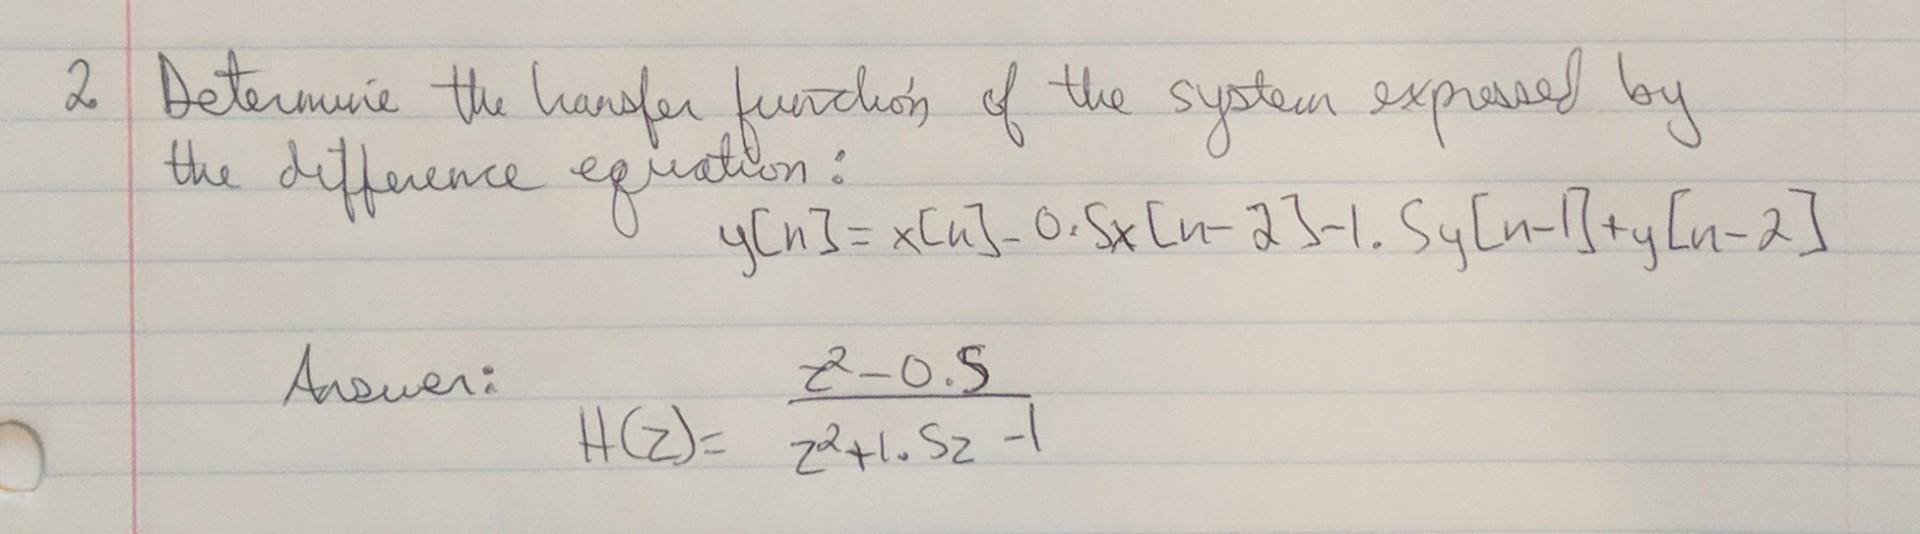 2 Determine the transfer function of the system expressed by
the difference equation:
y[n]=x[n]-0.5x[n-2]-1.5y[n-1]+y[n-2]
Answer:
H(z)= \frac{z^2-0.5}{z^2+1.5z-1}